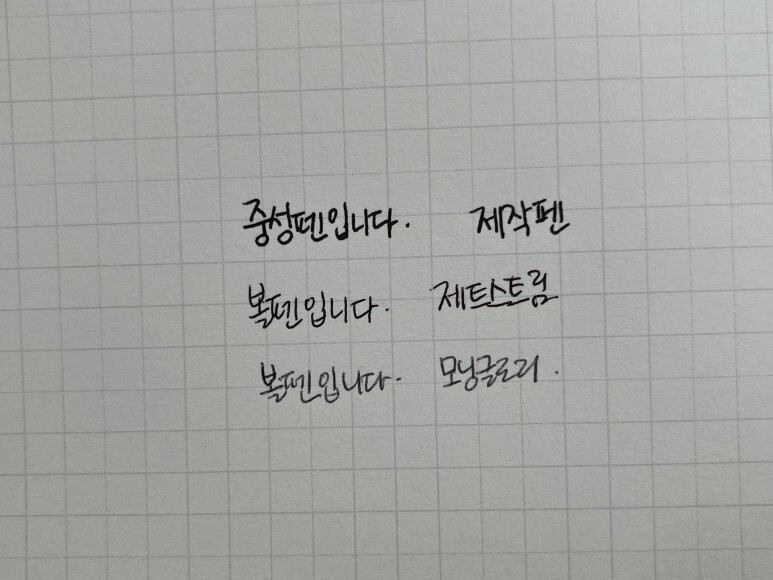 중성펜입니다. 제작펜
볼펜입니다. 제트스트림
볼펜입니다. 모닝글로리.